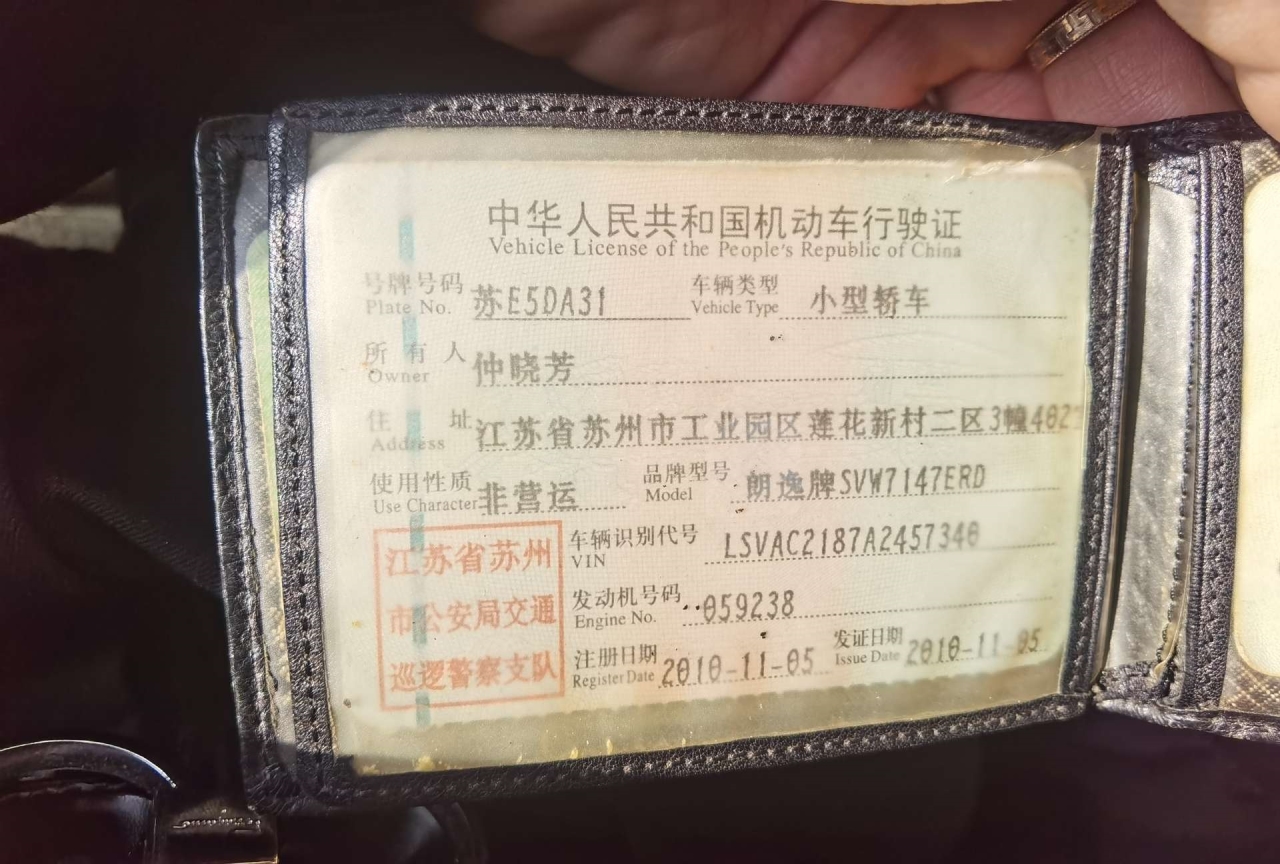 中华人民共和国机动车行驶证
Vehicle License of the People's Republic of China
号牌号码 苏E5DA31 车辆类型 小型轿车
Plate No. Vehicle Type
所有人 仲晓芳
Owner
住址 江苏省苏州市工业园区莲花新村二区3幢402
Address
使用性质 非营运 品牌型号 朗逸牌SVW7147ERD
Use Character Model
江苏省苏州
市公安局交通
巡逻警察支队
车辆识别代号 LSVAC2187A2457340
VIN
发动机号码 059238
Engine No.
注册日期 2010-11-05 发证日期 2010-11-05
Register Date Issue Date